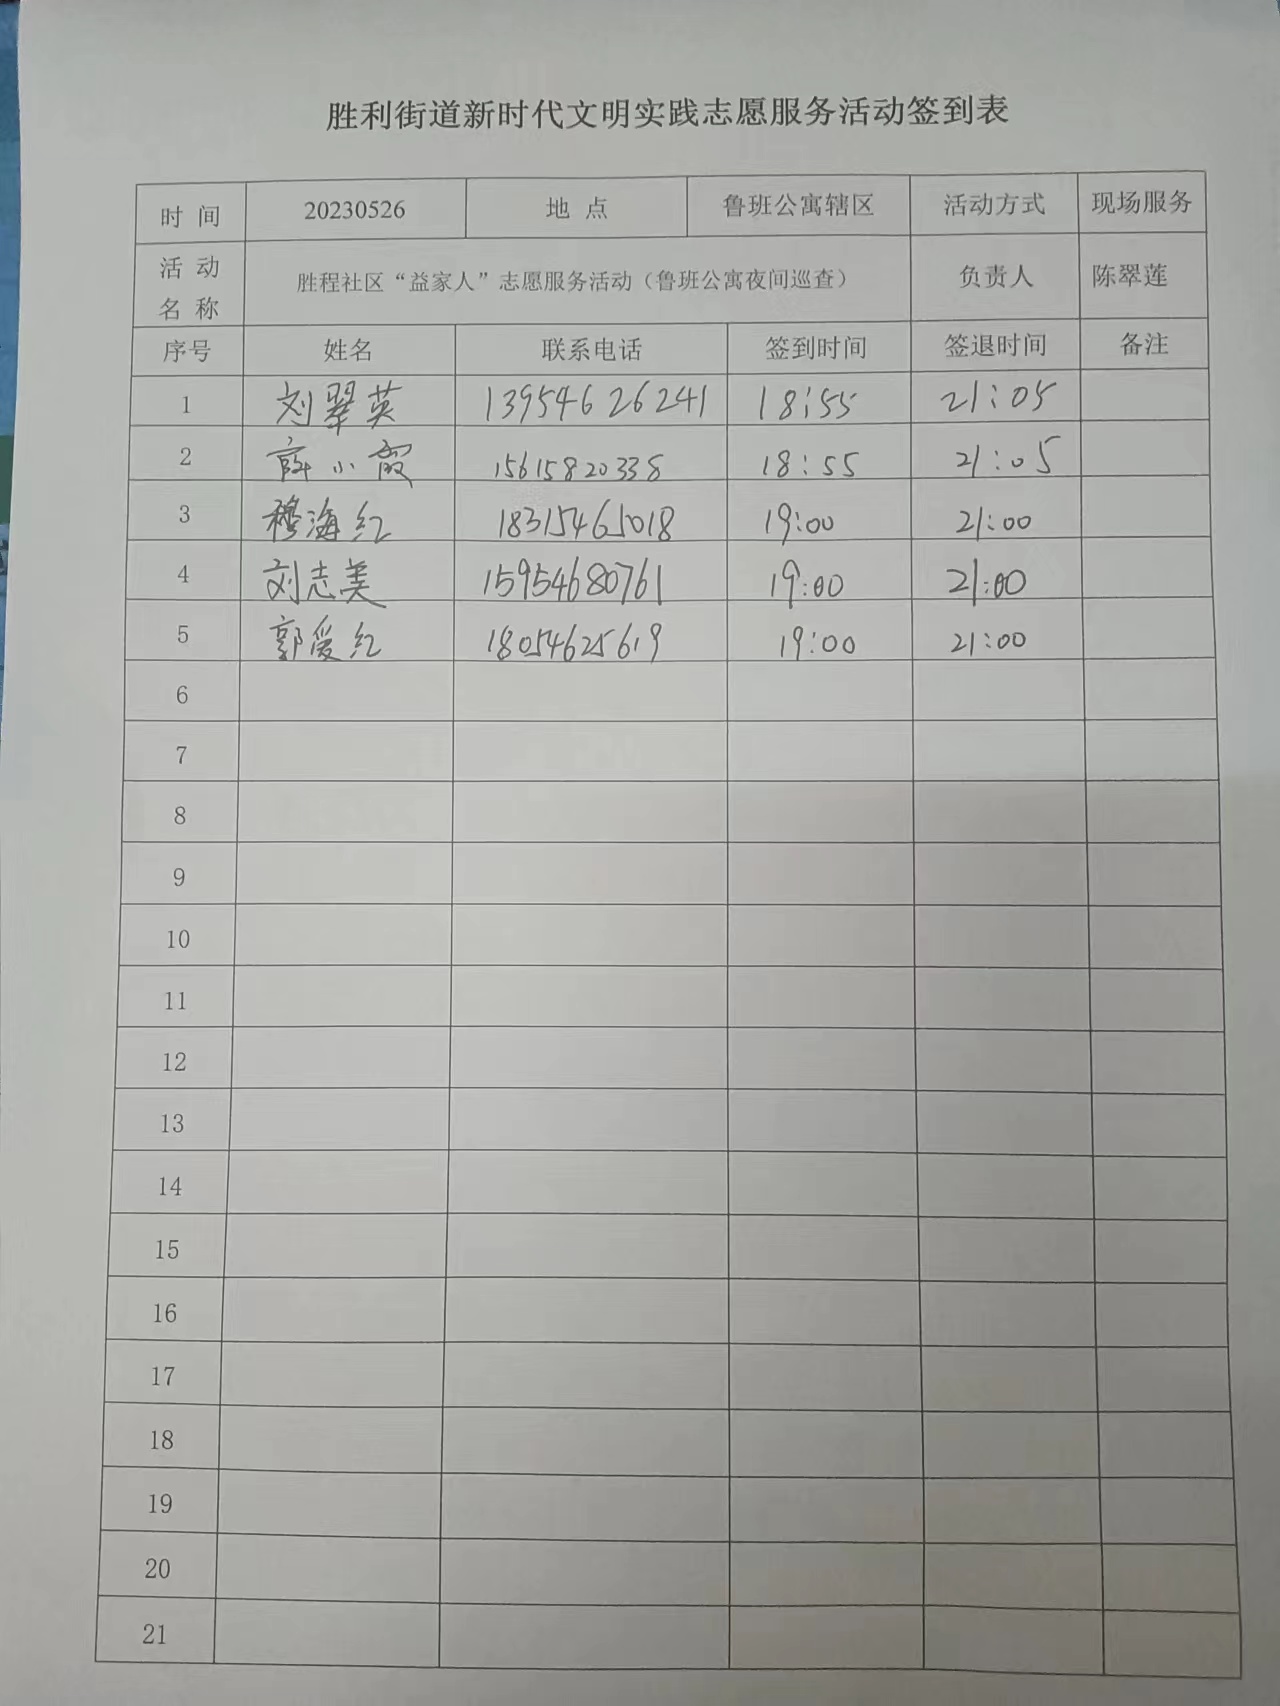 胜利街道新时代文明实践志愿服务活动签到表
时 间 20230526 地 点 鲁班公寓辖区 活动方式 现场服务
活 动
名 称 胜程社区“益家人”志愿服务活动（鲁班公寓夜间巡查） 负责人 陈翠莲
序号 姓名 联系电话 签到时间 签退时间 备注
1 刘翠英 13954626241 18:55 21:05
2 薛小霞 15615820338 18:55 21:05
3 穆海红 18315465018 19:00 21:00
4 刘志美 15954680761 19:00 21:00
5 郭爱红 18054625619 19:00 21:00
6
7
8
9
10
11
12
13
14
15
16
17
18
19
20
21